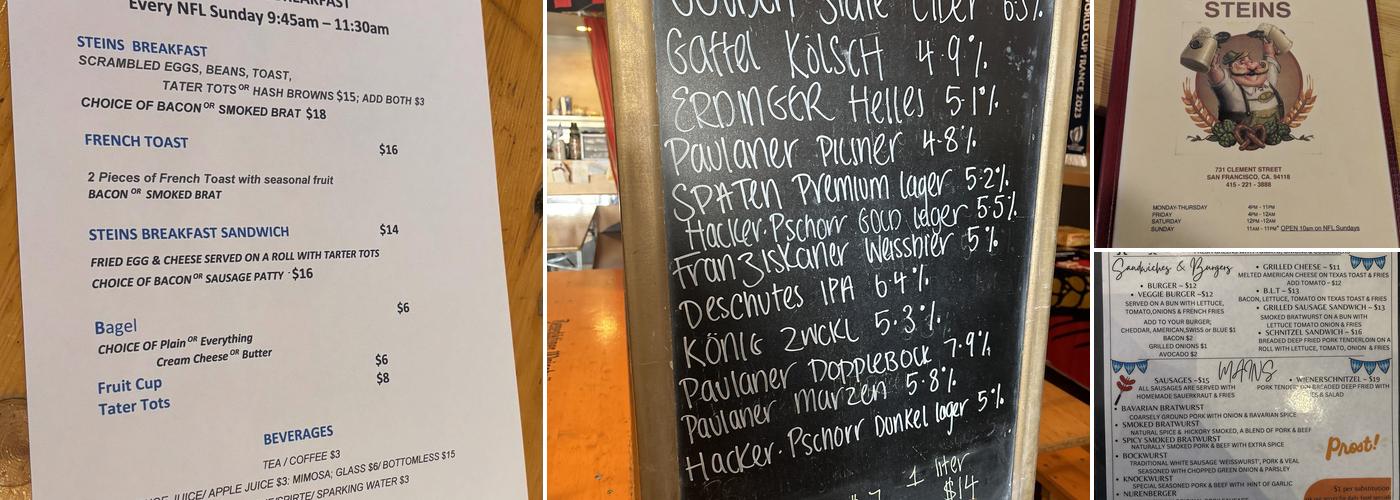 BREAKFAST
Every NFL Sunday 9:45am – 11:30am
STEINS BREAKFAST
SCRAMBLED EGGS, BEANS, TOAST,
TATER TOTS OR HASH BROWNS $15; ADD BOTH $3
CHOICE OF BACON OR SMOKED BRAT $18
FRENCH TOAST
$16
2 Pieces of French Toast with seasonal fruit
BACON OR SMOKED BRAT
STEINS BREAKFAST SANDWICH $14
FRIED EGG & CHEESE SERVED ON A ROLL WITH TARTER TOTS
CHOICE OF BACON OR SAUSAGE PATTY $16
$6
Bagel
CHOICE OF Plain OR Everything
Cream Cheese OR Butter
Fruit Cup $6
Tater Tots $8
BEVERAGES
TEA / COFFEE $3
JUICE/ APPLE JUICE $3: MIMOSA; GLASS $6/ BOTTOMLESS $15
/SPRITE/ SPARKING WATER $3
Golden State Cider 6.3%
Gaffel KÖLSCH 4.9%
ERDINGER Helles 5.1%
Paulaner PILSNER 4.8%
SPATEN Premium lager 5.2%
Hacker-Pschorr GOLD lager 5.5%
Franziskaner Weissbier 5%
Deschutes IPA 6.4%
KÖNIG ZWCKL 5.3%
Paulaner Dopplebock 7.9%
Paulaner Marzen 5.8%
Hacker-Pschorr Dunkel lager 5%
1 liter
$14
WORLD CUP FRANCE 2023
STEINS
731 CLEMENT STREET
SAN FRANCISCO, CA. 94118
415 - 221 - 3888
MONDAY-THURSDAY 4PM - 11PM
FRIDAY 4PM - 12AM
SATURDAY 12PM -12AM
SUNDAY 11AM - 11PM* OPEN 10am on NFL Sundays
Sandwiches & Burgers
• BURGER ~ $12
• VEGGIE BURGER ~$12
SERVED ON A BUN WITH LETTUCE,
TOMATO,ONIONS & FRENCH FRIES
ADD TO YOUR BURGER;
CHEDDAR, AMERICAN,SWISS or BLUE $1
BACON $2
GRILLED ONIONS $1
AVOCADO $2
• GRILLED CHEESE ~ $11
MELTED AMERICAN CHEESE ON TEXAS TOAST & FRIES
ADD TOMATO - $12
• B.L.T ~ $13
BACON, LETTUCE, TOMATO ON TEXAS TOAST & FRIES
• GRILLED SAUSAGE SANDWICH ~ $13
SMOKED BRATWURST ON A BUN WITH
LETTUCE TOMATO ONION & FRIES
• SCHNITZEL SANDWICH ~ $16
BREADED DEEP FRIED PORK TENDERLOIN ON A
ROLL WITH LETTUCE, TOMATO, ONION & FRIES
MAINS
SAUSAGES ~$15
ALL SAUSAGES ARE SERVED WITH
HOMEMADE SAUERKRAUT & FRIES
• WIENERSCHNITZEL ~ $19
PORK BREADED DEEP FRIED WITH
& SALAD
• BAVARIAN BRATWURST
COARSELY GROUND PORK WITH ONION & BAVARIAN SPICE
• SMOKED BRATWURST
NATURAL SPICE & HICKORY SMOKED, A BLEND OF PORK & BEEF
• SPICY SMOKED BRATWURST
NATURALLY SMOKED PORK & BEEF WITH EXTRA SPICE
• BOCKWURST
TRADITIONAL WHITE SAUSAGE 'WEISSWURST', PORK & VEAL
SEASONED WITH CHOPPED GREEN ONION & PARSLEY
• KNOCKWURST
SPECIAL SEASONED PORK & BEEF WITH HINT OF GARLIC
• NURENBERGER
Prost!
$1 per substitution